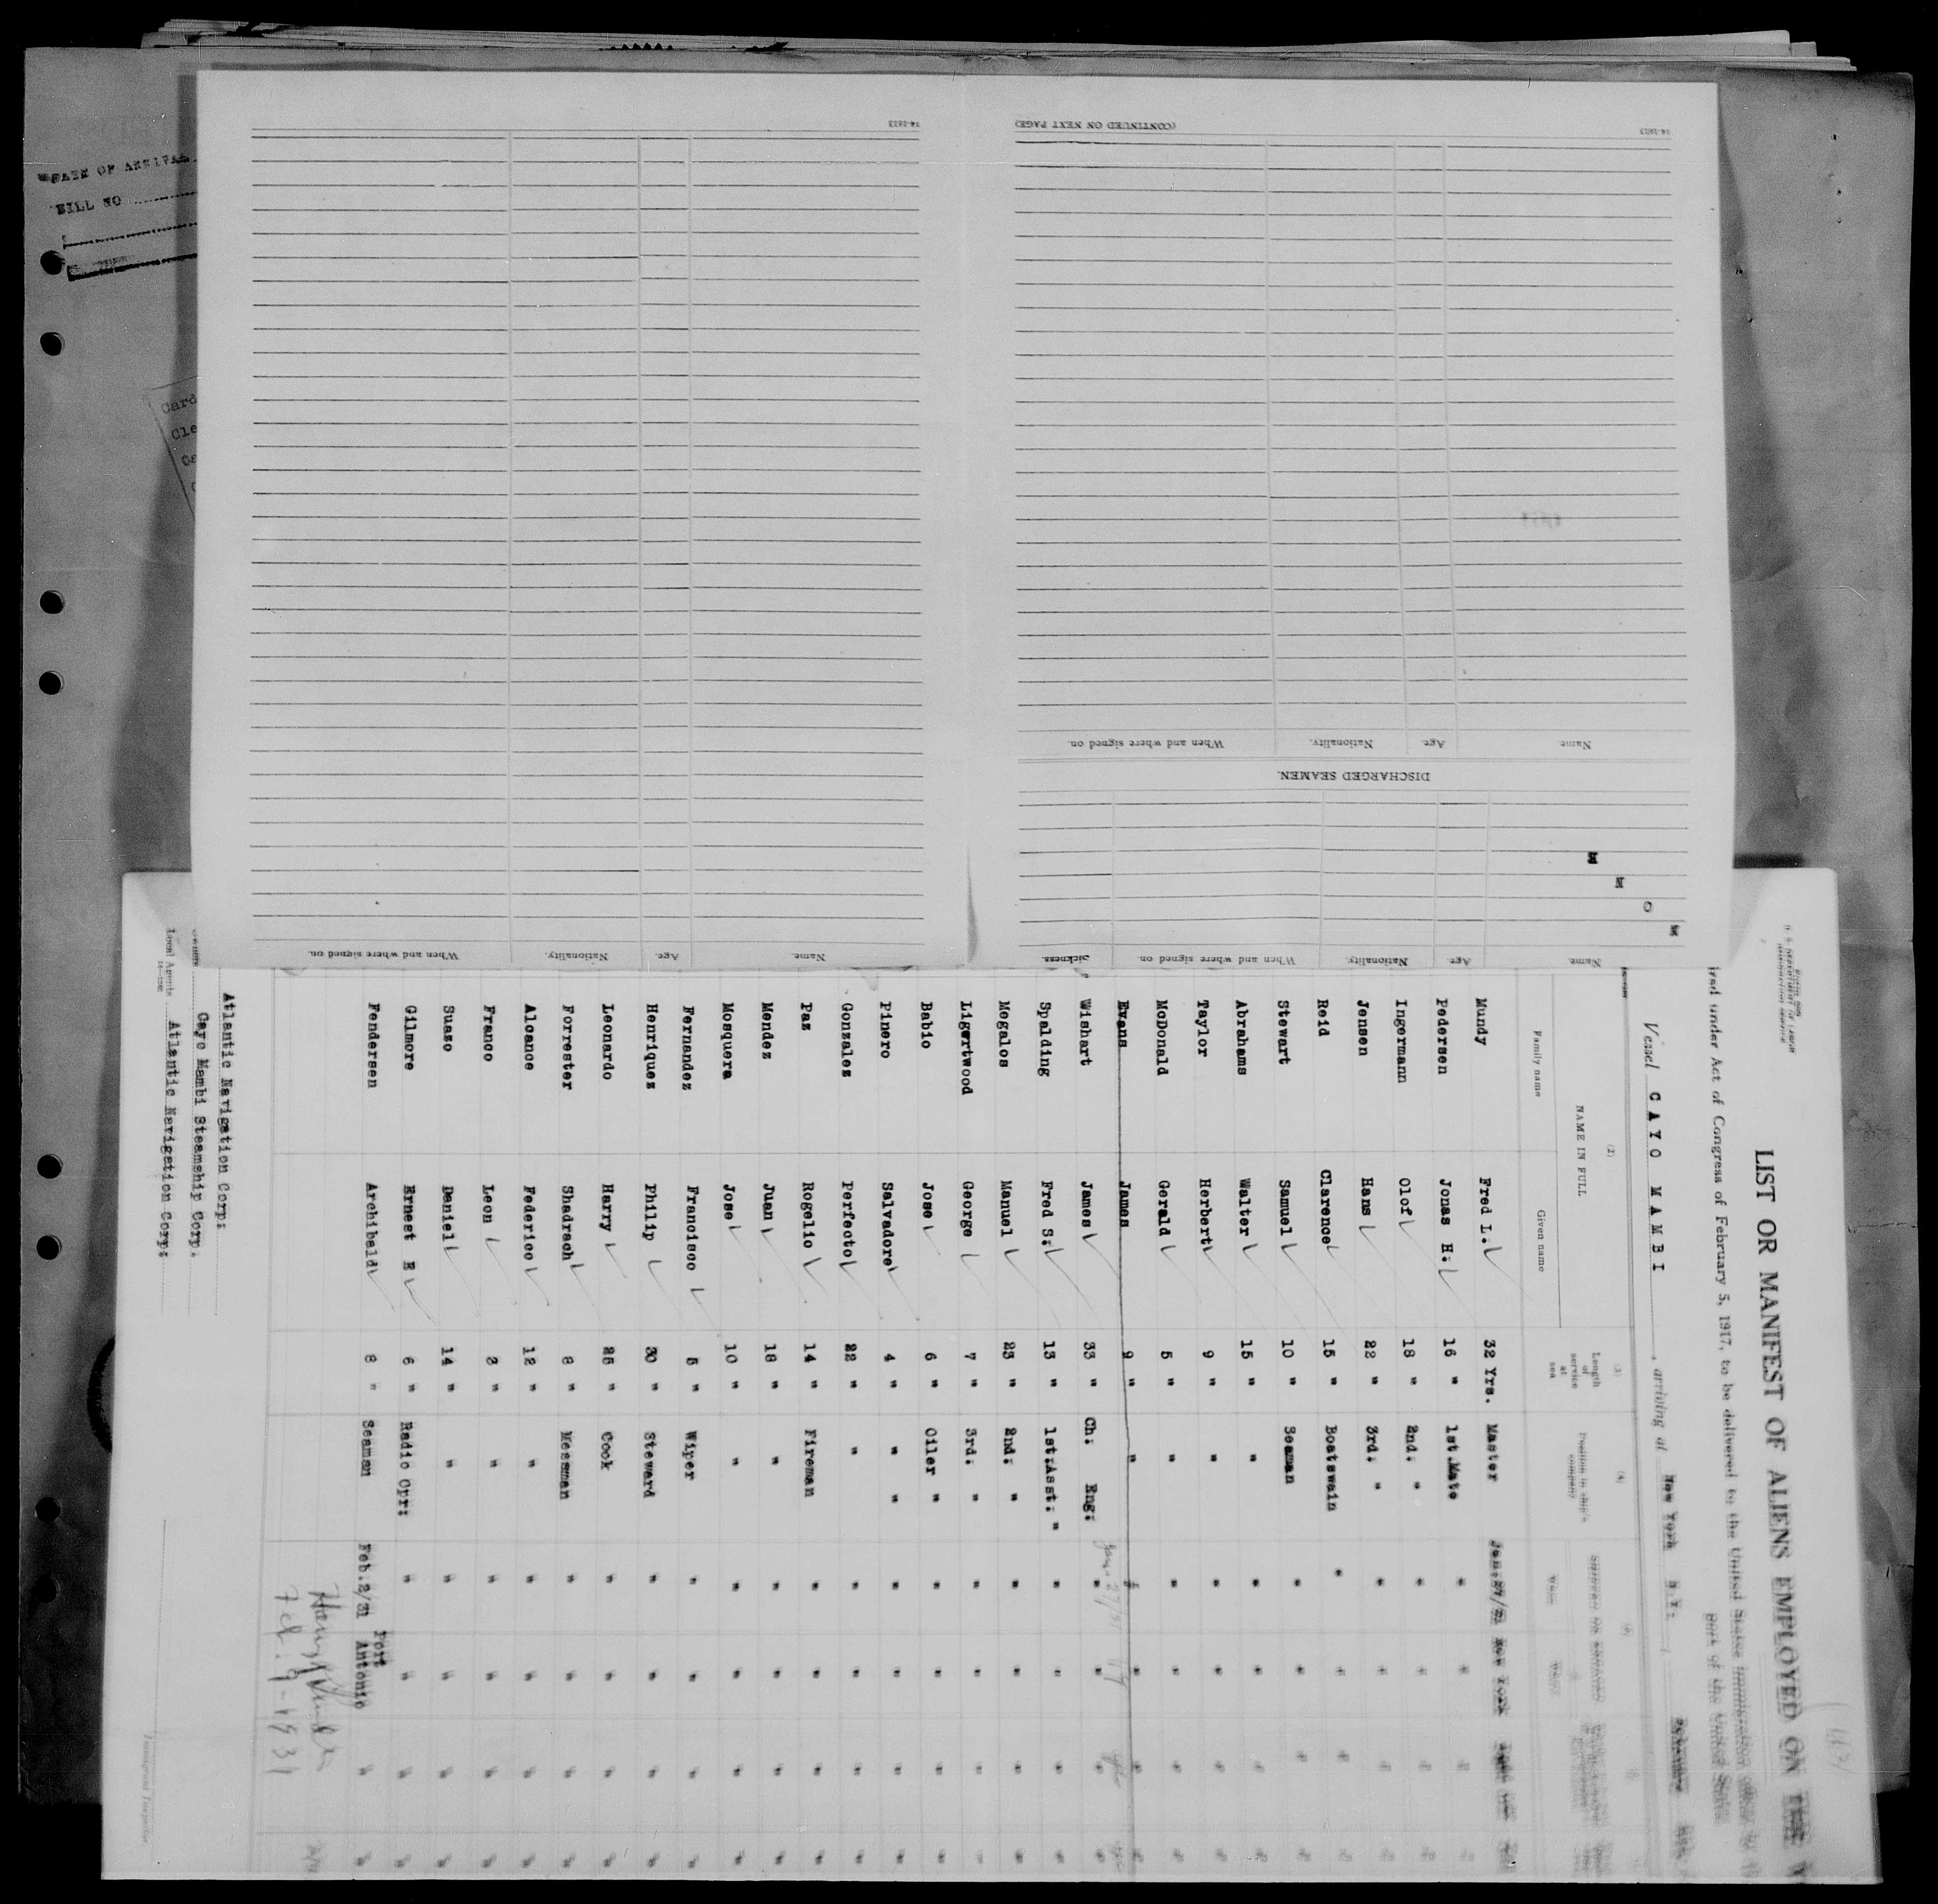 LIST OR MANIFEST OF ALIENS EMPLOYED ON THE
Act of Congress of February 5, 1917, to be delivered to the United States immigration
port of the United States
Vessel CAYO MAMBI, arriving at New York N.Y.
(2) (3) (4)
NAME IN FULL Length of service at sea Position in ship's company
Family name Given name
Mundy Fred L. 32 Yrs. Master Jan.27/31 New York
Pedersen Jonas H: 16 " 1st.Mate " "
Ingermann Olof 18 " 2nd: " " "
Jensen Hans 22 " 3rd: " " "
Reid Clarence 15 " Boatswain " "
Stewart Samuel 10 " Seaman " "
Abrahams Walter 15 " " " "
Taylor Herbert 9 " " " "
McDonald Gerald 5 " " " "
Evans James 9 " " " "
Wishart James 33 " Ch: Eng: " "
Spalding Fred S: 13 " 1st:Asst: " " "
Megalos Manuel 23 " 2nd: " " "
Ligertwood George 7 " 3rd: " " "
Babio Jose 6 " Oiler " " "
Pinero Salvadore 4 " " " " "
Gonzalez Perfecto 22 " " " "
Paz Rogelio 14 " Fireman " "
Mendez Juan 18 " " " "
Mosquera Jose 10 " " " "
Fernandez Francisco 5 " Wiper " "
Henriquez Philip 30 " Steward " "
Leonardo Harry 25 " Cook " "
Forrester Shadrach 8 " Messman " "
Alcance Federico 12 " " " "
Franco Leon 3 " " " "
Suazo Daniel 14 " " " "
Gilmore Ernest E 6 " Radio Opr: " "
Fendersen Archibald 8 " Seaman Feb.2/31 Port Antonio
Feb. 9-1931
Atlantic Navigation Corp:
Cayo Mambi Steamship Corp.
Local Agents Atlantic Navigation Corp:
Name. Age. Nationality. When and where signed on. Sickness.
N O N E
DISCHARGED SEAMEN.
Name. Age. Nationality. When and where signed on.
(CONTINUED ON NEXT PAGE)
14-1813
Name. Age. Nationality. When and where signed on.
14-1813
DATE OF ARRIVAL
BILL NO